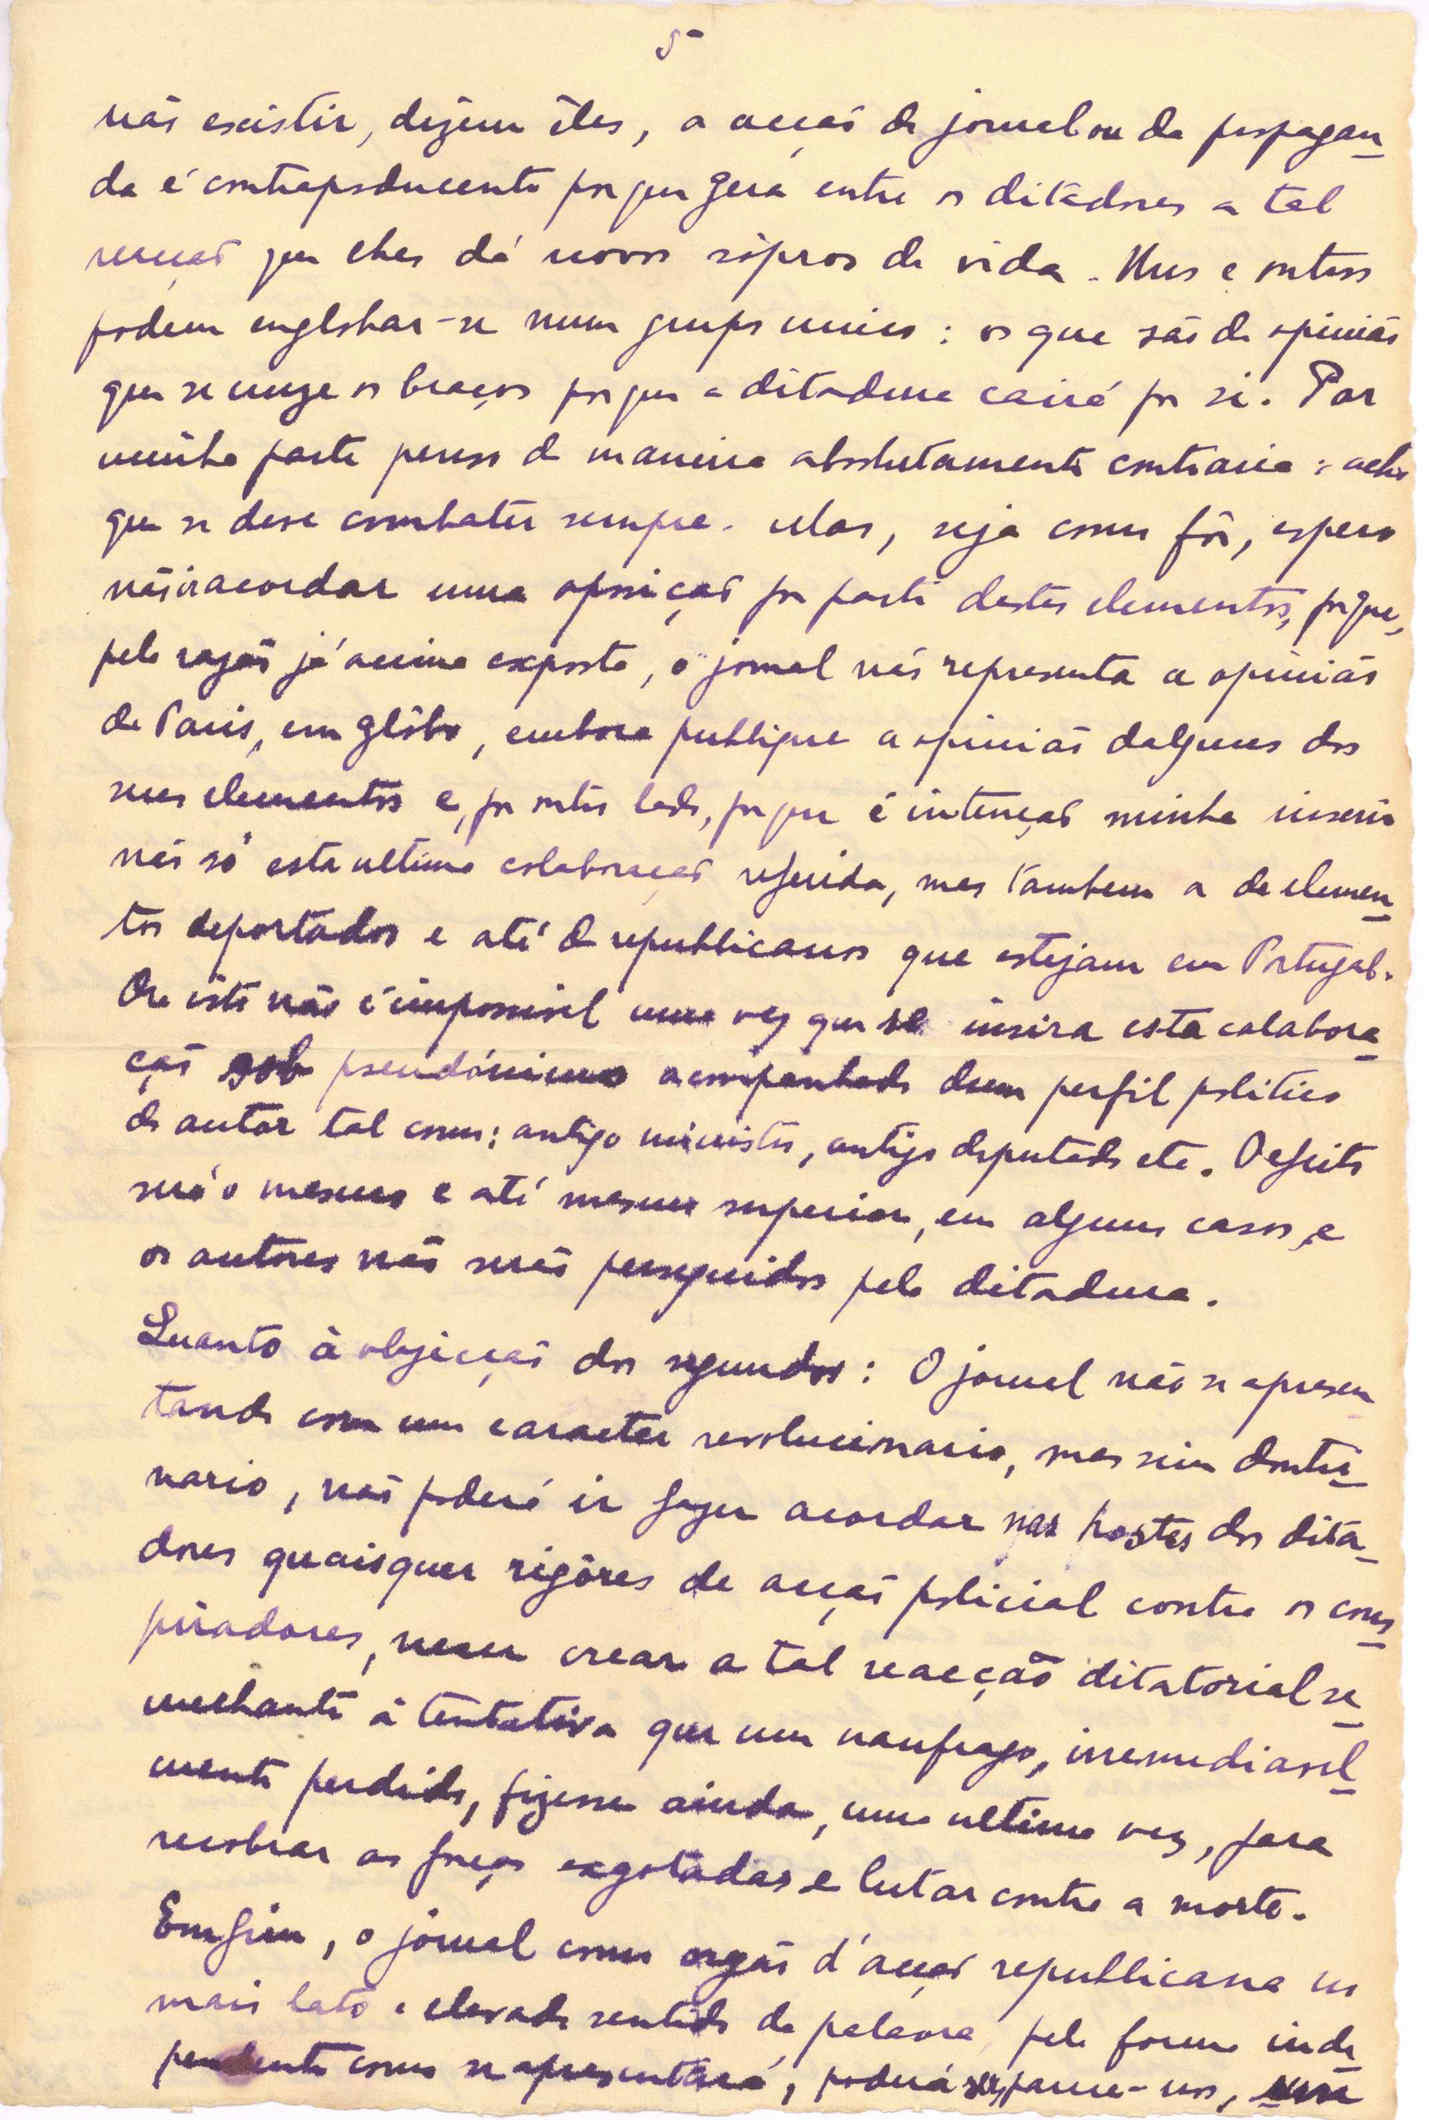 5
não existir, dizem êles, a acção do jornal ou da propagan
da é contraproducente porque gera entre os ditadores a tal
reacção que lhes dá novos sôpros de vida. Uns e outros
podem englobar-se num grupo unico: os que são de opinião
que se cruze os braços porque a ditadura cairá por si. Por
minha parte penso de maneira absolutamente contraria: acho
que se deve combater sempre. Mas, seja como fôr, espero
não ir acordar uma oposição por parte destes elementos, porque,
pela razão já acima exposta, o jornal não representa a opinião
de Paris, em glôbo, embora publique a opinião dalguns dos
seus elementos e, por outro lado, porque é intenção minha inserir
não só esta ultima colaboração referida, mas tambem a de elemen
tos deportados e até de republicanos que estejam em Portugal.
Ora isto não é impossivel uma vez que se insira esta colabora
ção sob pseudónimo acompanhado dum perfil politico
do autor tal como: antigo ministro, antigo deputado etc. O efeito
será o mesmo e até mesmo superior, em alguns casos, e
os autores não serão perseguidos pela ditadura.
Quanto à objecção dos segundos: O jornal não se apresen
tando com um caracter revolucionario, mas sim doutri
nario, não poderá ir fazer acordar nas hostes dos dita-
dores quaisquer rigôres de acção policial contra os cons
piradores, nem crear a tal reacção ditatorial se
melhante à tentativa que um naufrago, irremediavel
mente perdido, fizesse ainda, uma ultima vez, para
recobrar as forças exgotadas e lutar contra a morte.
Emfim, o jornal como orgão d'acção republicana no
mais lato e elevado sentido da palavra, pela forma inde
pendente como se apresentará, poderá ser, parece-nos,